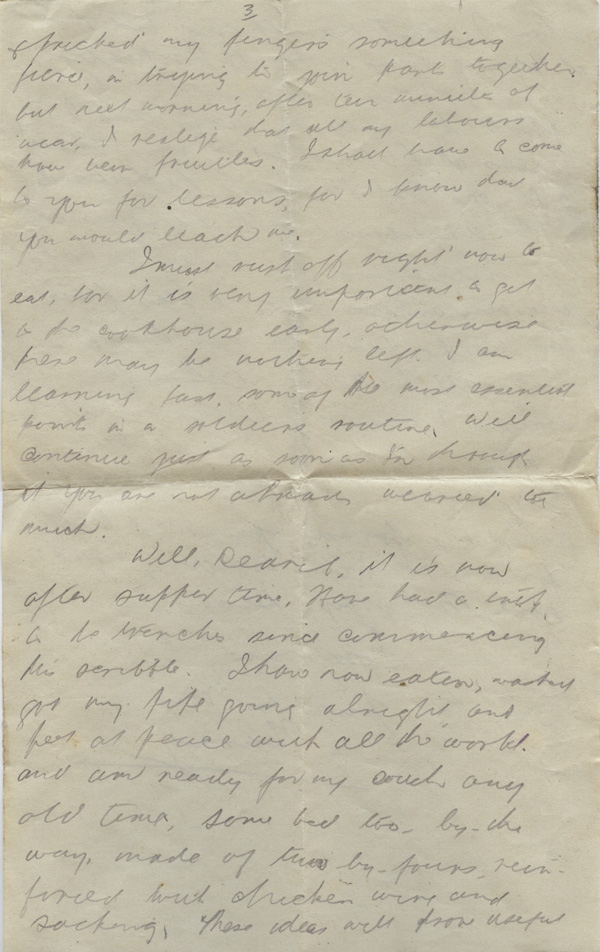 3
& pricked my fingers something
fierce, in trying to join parts together.
but next morning, after ten minutes of
wear, I realize that all my labours
have been fruitles. I shall have to come
to you for lessons, for I know that
you would teach me.
I must rush off right now to
eat, for it is very important to get
to the cookhouse early, otherwise
there may be nothing left. I am
learning fast, some of the most essential
points in a soldiers routine, will
continue just as soon as I'm through
if you are not already wearied too
much.
Well, Dearie, it is now
after supper time, Have had a visit
to the trenches since commencing
this scribble. I have now eaten, washed
got my pipe going alright and
feel at peace with all the world.
and am ready for my couch any
old time, some bed too - by-the
way, made of two by-fours, rein-
forced with chicken wire and
sacking, These ideas will prove useful